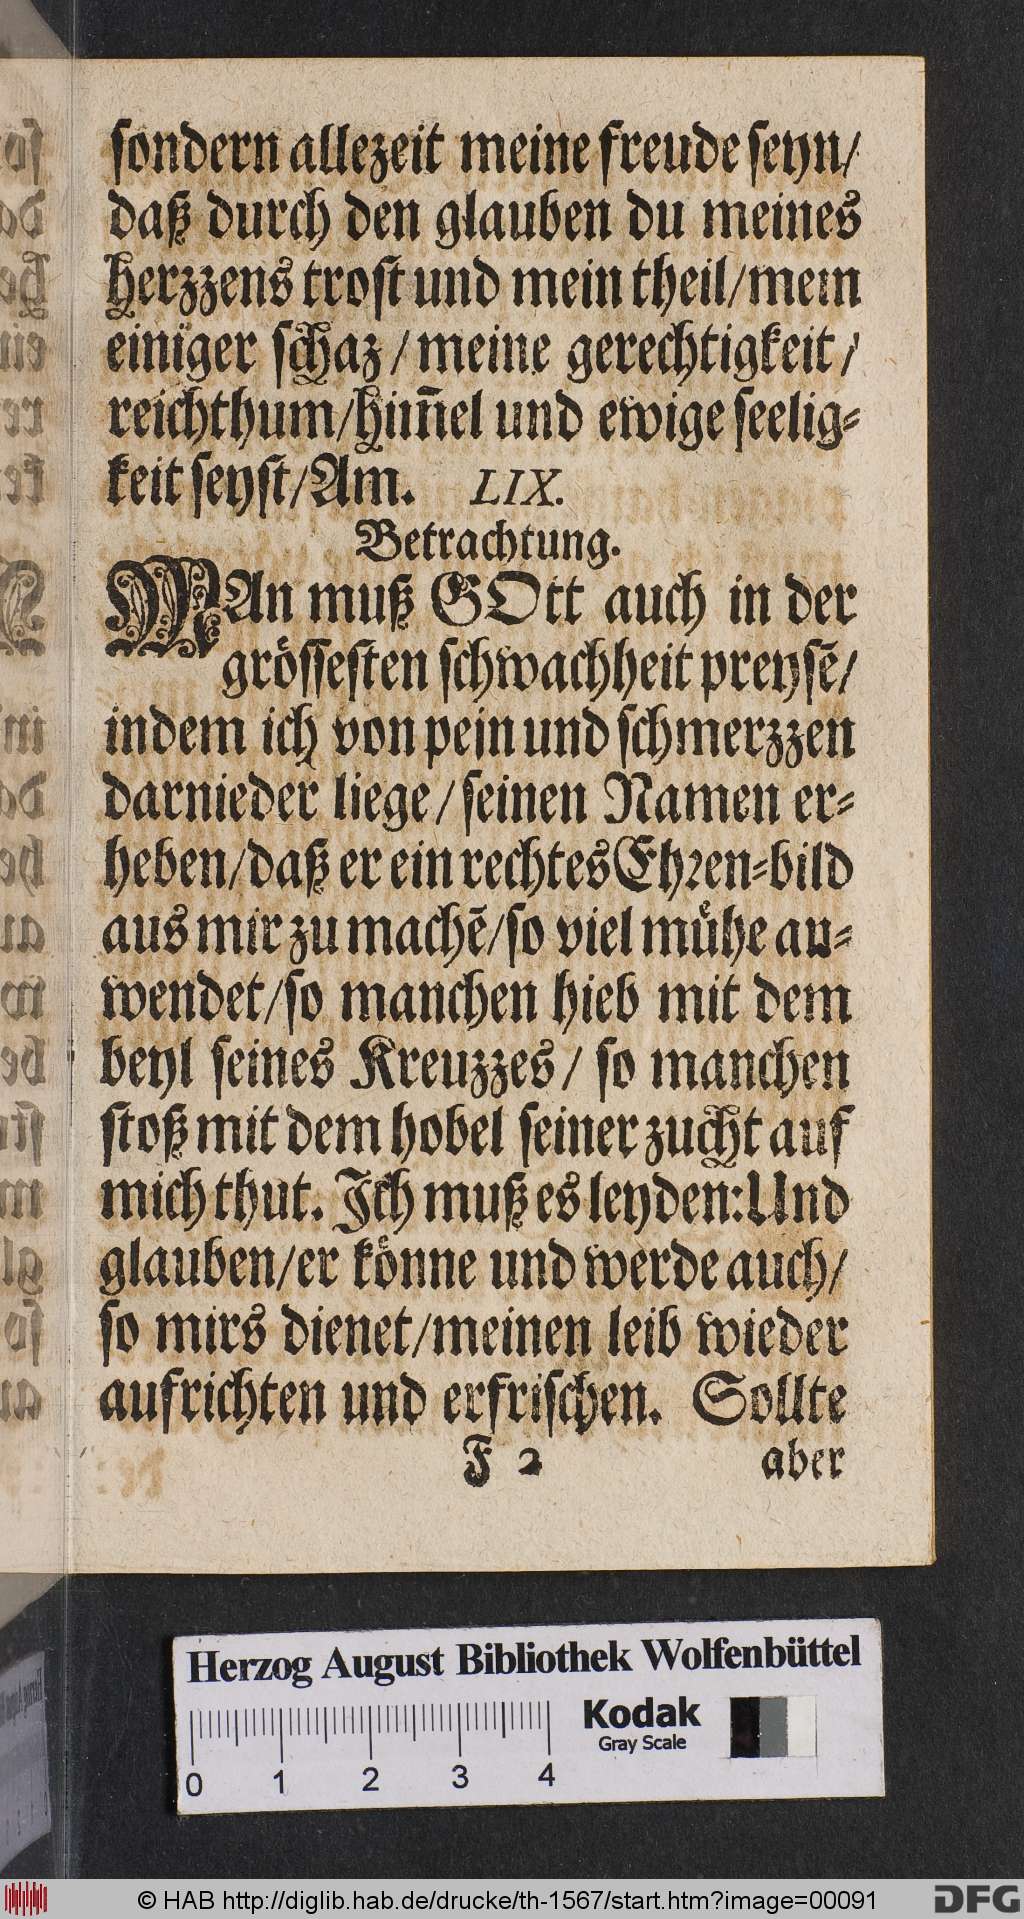 sondern allezeit meine freude seyn/
daß durch den glauben du meines
herzzens trost und mein theil/mein
einiger schaz/meine gerechtigkeit/
reichthum/him̅el und ewige seelig⸗
keit seyst/Am. LIX.
Betrachtung.
MAn muß GOtt auch in der
grössesten schwachheit preysẽ/
indem ich von pein und schmerzzen
darnieder liege/seinen Namen er⸗
heben/daß er ein rechtes Ehren⸗bild
aus mir zu machẽ/so viel mühe an⸗
wendet/so manchen hieb mit dem
beyl seines Kreuzzes/ so manchen
stoß mit dem hobel seiner zucht auf
mich thut. Ich muß es leyden: Und
glauben/er könne und werde auch/
so mirs dienet/meinen leib wieder
aufrichten und erfrischen. Sollte
F 2 aber
Herzog August Bibliothek Wolfenbüttel
Kodak
Gray Scale
0 1 2 3 4
© HAB http://diglib.hab.de/drucke/th-1567/start.htm?image=00091
DFG